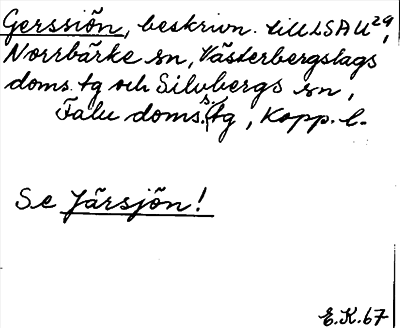 Gerssiön, beskrivn. till LSA U29,
Norrbärke sn, Västerbergslags
doms. tg och Silvbergs sn,
Falu doms. s. tg, Kopp. l.
Se Järsjön!
E.K.67